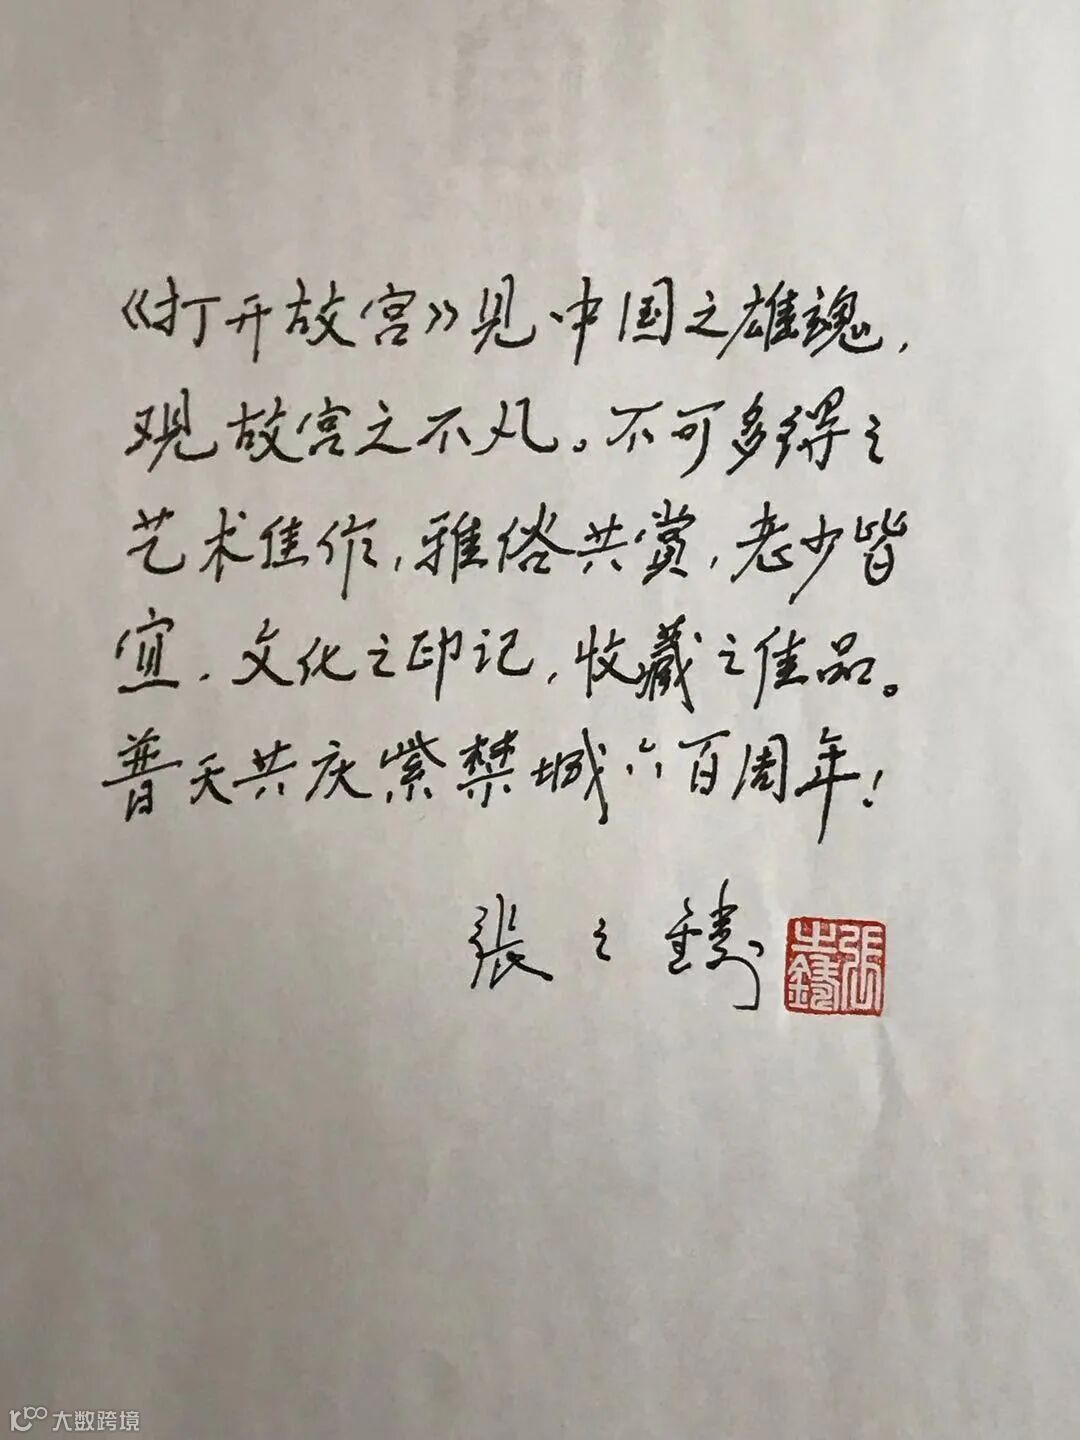 《打开故宫》见中国之雄魂，
观故宫之不凡。不可多得之
艺术佳作，雅俗共赏，老少皆
宜．文化之印记，收藏之佳品。
普天共庆紫禁城六百周年！
張之鑄
張之鑄
大数跨境